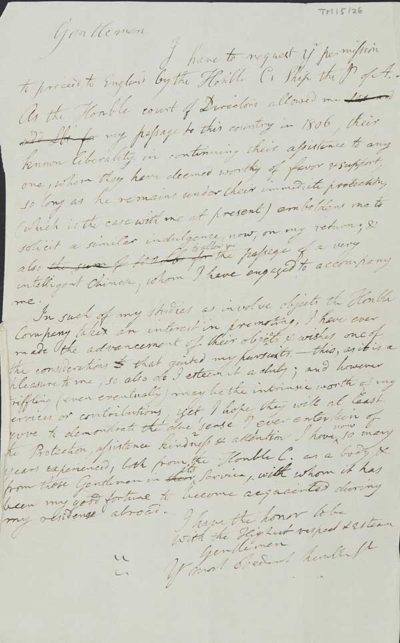 TM/5/26
Gentlemen
I have to request yr permission
to proceed to England by the Honble Cs Ship the P. of A.
As the Honble court of Directors allowed me
for my passage to this country in 1806, their
known liberality in continuing their assistance to any
one, whom they have deemed worthy of favor & support,
so long as he remains under their immediate protection,
(which is the case with me at present) emboldens me to
solicit a similar indulgence, now, on my return; &
also the sum of for the passage of a very
intelligent Chinese, whom I have engaged to accompany
me.
In such of my studies as involve objects the Honble
Company takes an interest in promoting, I have ever
made the advancement of their objects & wishes one of
the considerations that guided my pursuits — this, as it is a
pleasure to me, so also do I esteem it a duty; and however
trifling (even eventually) may be the intrinsic worth of my
services or contributions, yet I hope they will at least
serve to demonstrate the due sense I ever entertain of
the Protection, assistance kindness & attention I have, now so many
years experienced, both from the Honble C. as a body, &
from those Gentlemen in their Service, with whom it has
been my good fortune to become acquainted during
my residence abroad.
I have the honor to be
With the Highest respect & esteem
Gentlemen
Yr most obedient humble St